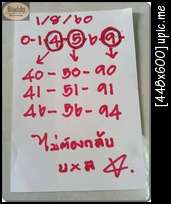 1/8/60
0-1 4 5 6 9
40-50-90
41-51-91
46-56-94
ไม่ต้องกลับ
บ×ส
[448x600] upic.me